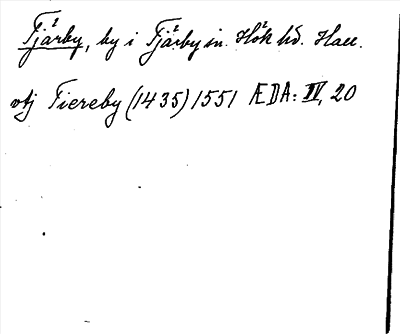 Tjärby, by i Tjärby sn. Hök hd. Hall.
vtj Tiereby (1435) 1551 ÆDA: IV, 20